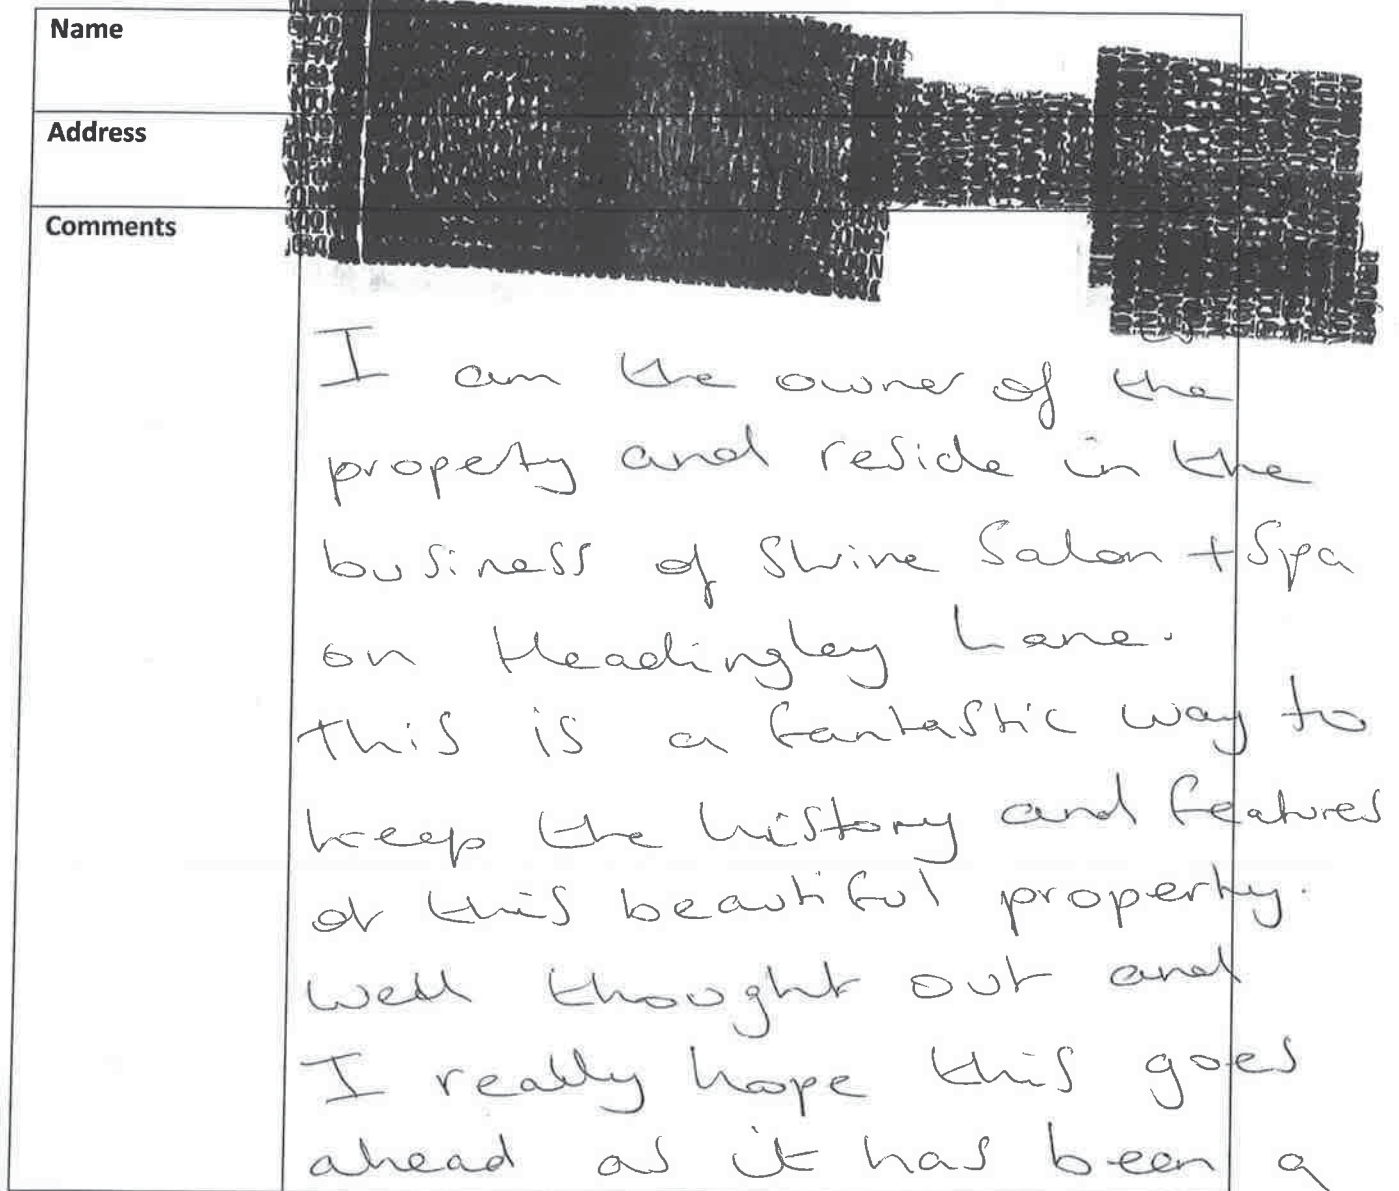 Name
Address
Comments
I am the owner of the
property and reside in the
business of Shine Salon + Spa
on Headingley Lane.
This is a fantastic way to
keep the history and features
of this beautiful property.
Well thought out and
I really hope this goes
ahead as it has been a